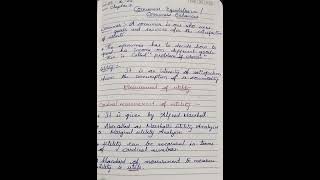 Chapter
Consumer Equilibrium /
Consumer Behaviour
Consumer :- A consumer is one who uses
goods and services for the satisfaction
of wants.
The consumer has to decide how to
spend his income over different goods.
This is called "problem of choice".
Utility :- It is an intensity of satisfaction
from the consumption of a commodity
Measurement of utility
Cardinal measurement of utility :-
It is given by Alfred Marshal.
also called as Marshall's utility analysis
Marginal utility Analysis.
Utility can be measured in terms
of cardinal numbers.
Standard of measurement to measure
utility is utils.